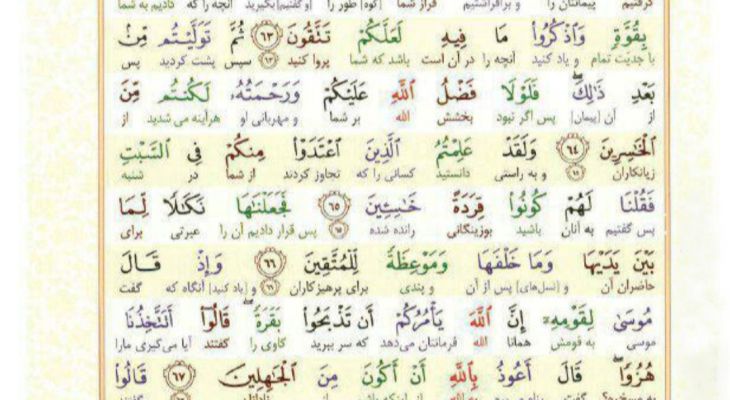 گرفتیم پیمانتان را و برافراشتیم فراز شما [کوه] طور را [و گفتیم] بگیرید آنچه را که دادیم به شما
بِقُوَّةٍ وَاذْكُرُوا مَا فِيهِ لَعَلَّكُمْ تَتَّقُونَ ۶۳ ثُمَّ تَوَلَّيْتُم مِّنْ
با جدّیّت تمام و یاد کنید آنچه را در آن است باشد که شما پروا کنید ۶۳ سپس پشت کردید پس
بَعْدِ ذَٰلِكَ ۖ فَلَوْلَا فَضْلُ اللَّهِ عَلَيْكُمْ وَرَحْمَتُهُ لَكُنتُم مِّنَ
از آن [پیمان] پس اگر نبود بخشش الله بر شما و مهربانی او هرآینه می شدید از
الْخَاسِرِينَ ۶۴ وَلَقَدْ عَلِمْتُمُ الَّذِينَ اعْتَدَوْا مِنكُمْ فِي السَّبْتِ
زیانکاران ۶۴ و به راستی دانستید کسانی را که تجاوز کردند از شما در شنبه
فَقُلْنَا لَهُمْ كُونُوا قِرَدَةً خَاسِئِينَ ۶۵ فَجَعَلْنَاهَا نَكَالًا لِّمَا
پس گفتیم به آنان باشید بوزینگانی رانده شده ۶۵ پس قرار دادیم آن را عبرتی برای
بَيْنَ يَدَيْهَا وَمَا خَلْفَهَا وَمَوْعِظَةً لِّلْمُتَّقِينَ ۶۶ وَإِذْ قَالَ
حاضران آن و [نسل‌های] پس از آن و پندی برای پرهیزکاران ۶۶ و [یاد کنید] آنگاه که گفت
مُوسَىٰ لِقَوْمِهِ إِنَّ اللَّهَ يَأْمُرُكُمْ أَن تَذْبَحُوا بَقَرَةً ۖ قَالُوا أَتَتَّخِذُنَا
موسی به قومش همانا الله فرمانتان می‌دهد که سر ببرید گاوی را گفتند آیا می‌گیری مارا
هُزُوًا ۖ قَالَ أَعُوذُ بِاللَّهِ أَنْ أَكُونَ مِنَ الْجَاهِلِينَ ۶۷ قَالُوا